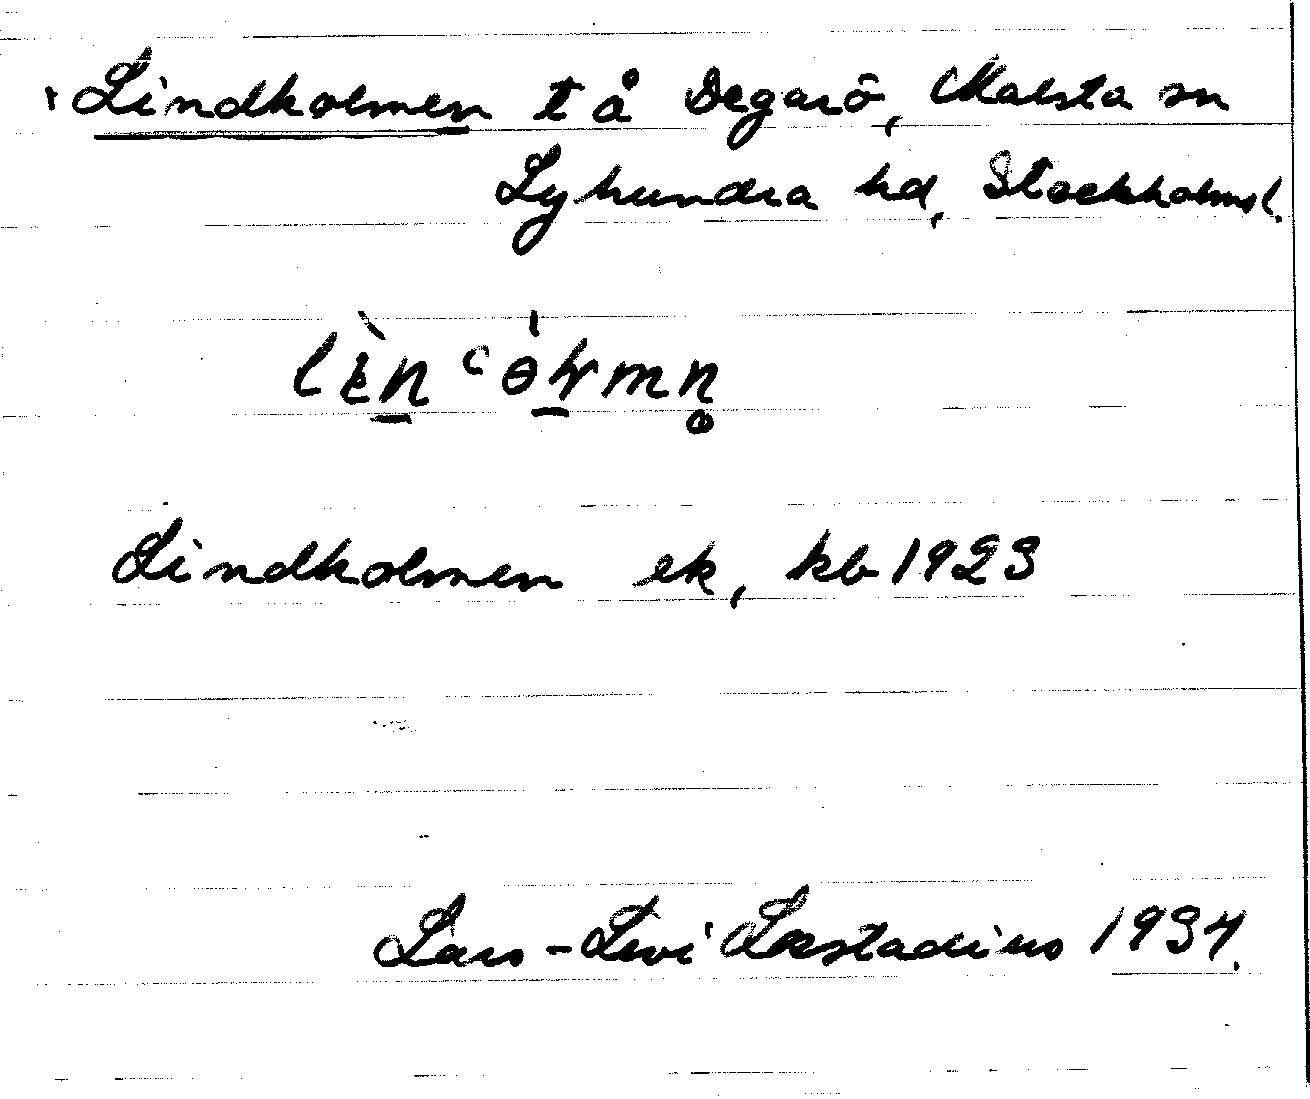 Lindholmen t å Degarö, Malsta sn
Lyhundra hd, Stockholmsl.
Lindholmen ek, kb 1923
Lars-Levi Læstadius 1934.